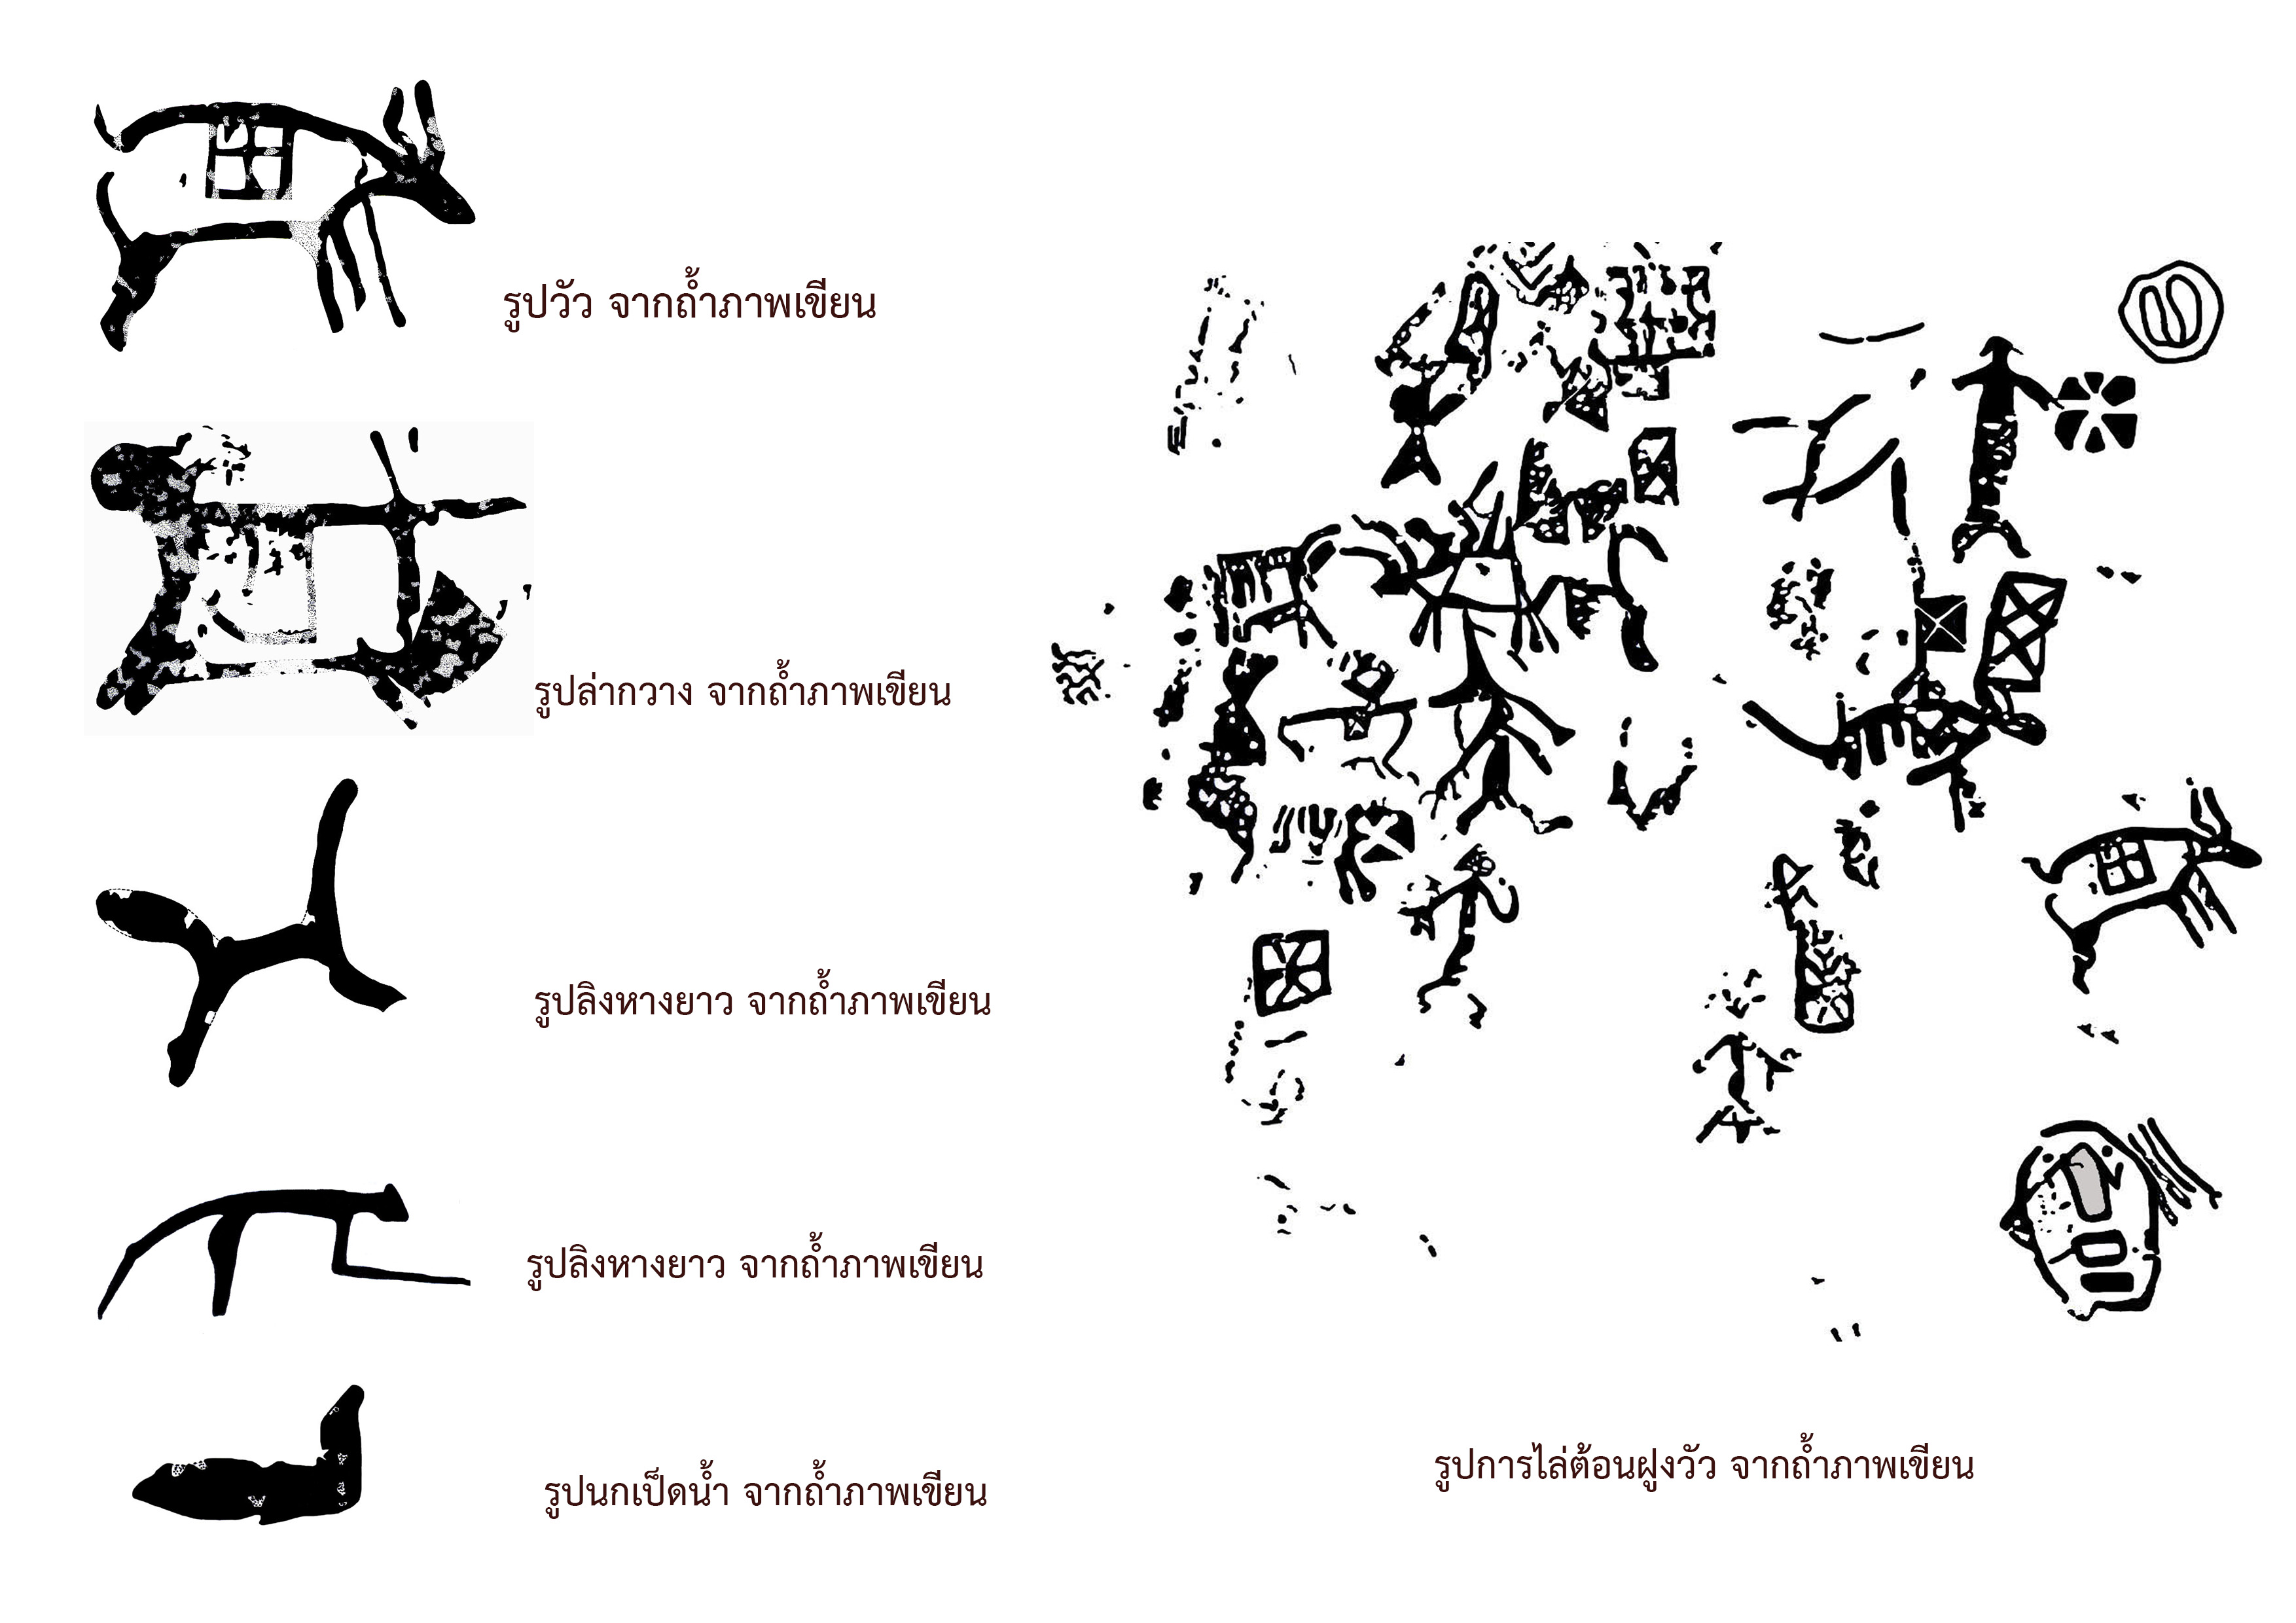 รูปวัว จากถ้ำภาพเขียน
รูปล่ากวาง จากถ้ำภาพเขียน
รูปลิงหางยาว จากถ้ำภาพเขียน
รูปลิงหางยาว จากถ้ำภาพเขียน
รูปนกเป็ดน้ำ จากถ้ำภาพเขียน
รูปการไล่ต้อนฝูงวัว จากถ้ำภาพเขียน